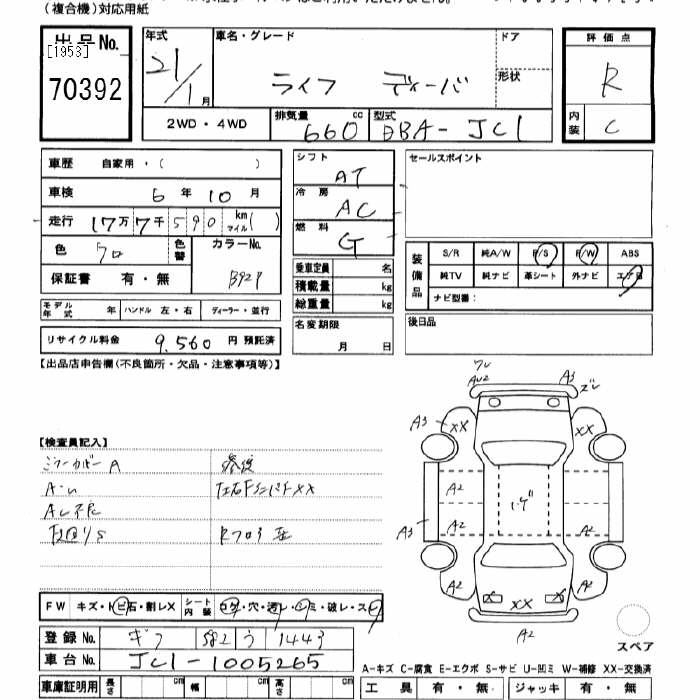 (複合機)対応用紙
出品No.
[1953]
70392
年式
21/1 月
車名・グレード
ライフ ディーバ
ドア
形状
評価点
R
内装
C
2WD・4WD
排気量
660 cc
型式
DBA-JC1
車歴 自家用・( )
車検 6年10月
走行 17万7千590 km マイル( )
色 クロ
色替
カラーNo.
B92P
保証書 有・無
シフト
AT
冷房
AC
燃料
G
乗車定員 名
積載量 kg
総重量 kg
セールスポイント
装備品
S/R 純A/W P/S P/W ABS
純TV 純ナビ 革シート 外ナビ エアB
ナビ型番:
モデル年式 年 ハンドル 左・右 ディーラー・並行
リサイクル料金 9,560 円 預託済
名変期限
月 日
後日品
【出品店申告欄(不良箇所・欠品・注意事項等)】
【検査員記入】
ミラーカバーA
修復
A3
A3
A2
XX
XX
A2
A2
A2
A3
A2
A2
A2
XX
A2
FW キズ・トビ石・割レX
シート内装 コゲ・穴・汚レ・シミ・破レ・スレ
登録No. ギフ 582 う 1443
車台No. JC1-1005265
車庫証明用 長さ cm 幅 cm 高さ cm
スペア
A-キズ C-腐食 E-エクボ S-サビ U-凹ミ W-補修 XX-交換済
工具 有・無 ジャッキ 有・無